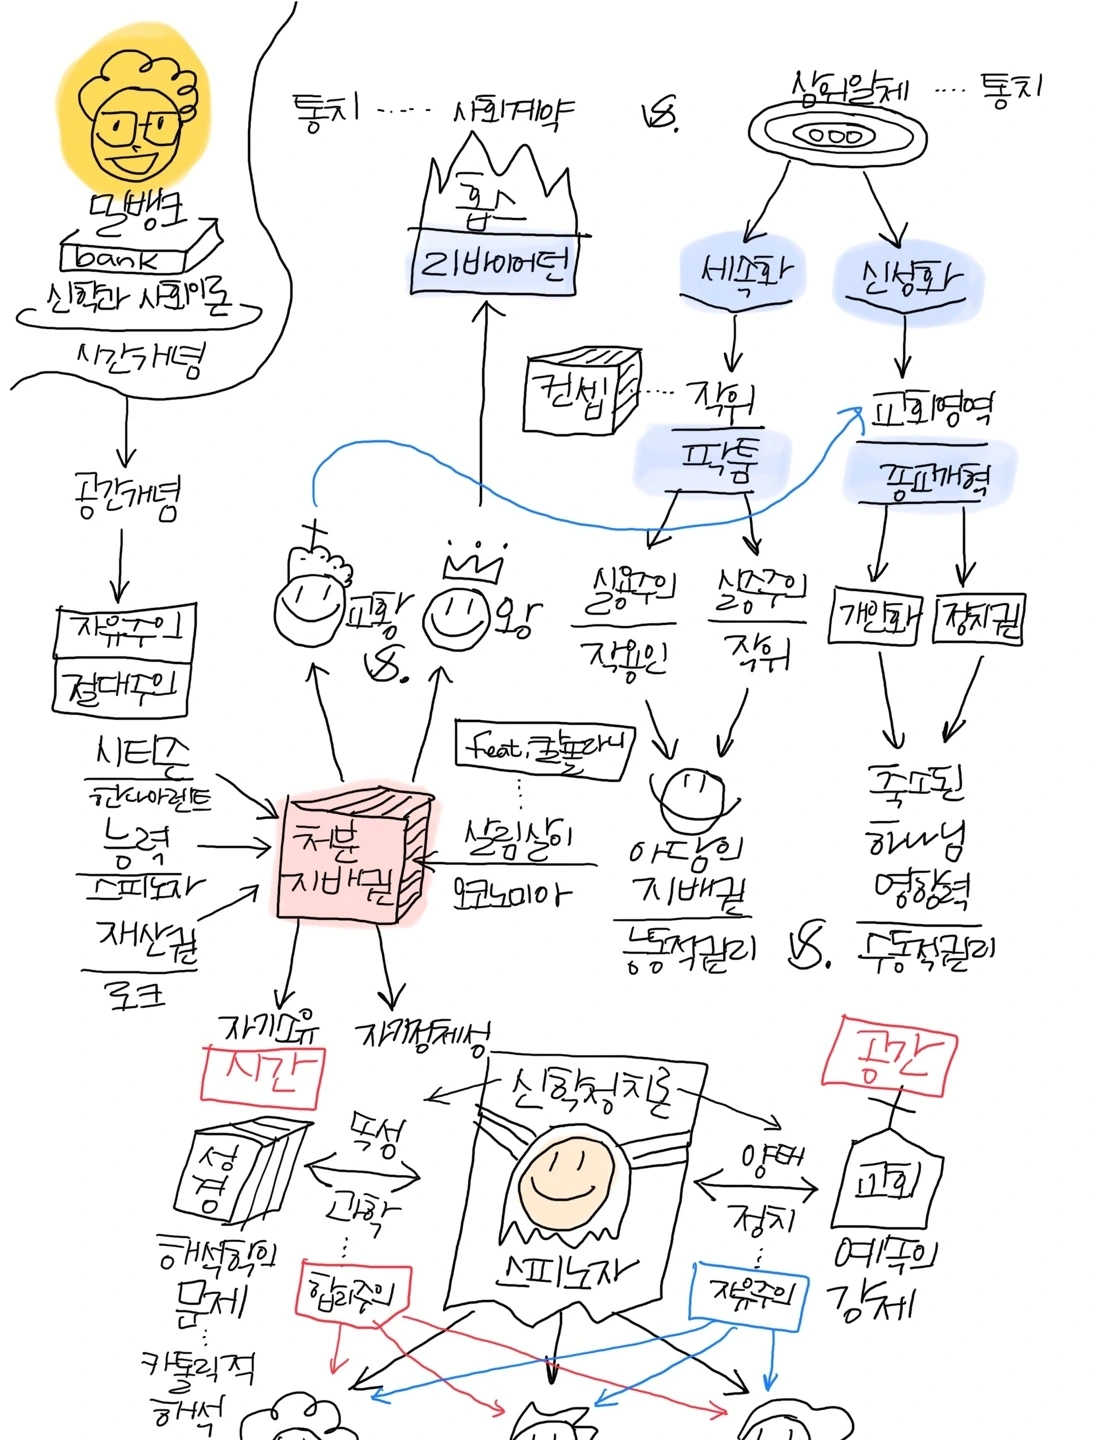 통치 ---- 사회계약
vs.
삼위일체 .... 통치
밀뱅크
bank
신학과 사회이론
시간개념
홉스
리바이어던
세속화
신성화
컨셉 ..... 작위
팍툼
교회영역
종교개혁
공간개념
자유주의
절대주의
교황
vs.
왕
실용주의
작용인
실증주의
작위
개인화
정치권
시티즌
한나아렌트
능력
스피노자
재산권
로크
처분
지배권
feat. 칼폴라니
살림살이
오코노미아
아담의
지배권
능동적권리
vs.
축소된
하나님
영향력
수동적권리
자기소유
시간
자기정체성
신학정치론
공간
성경
독성
과학
합리주의
스피노자
양태
정치
자유주의
교회
예측의
강제
해석학의
문제
카톨릭적
해석